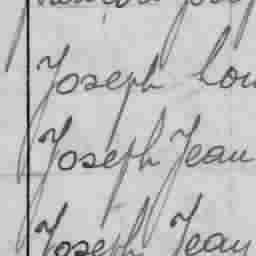 Joseph Lou
Joseph Jean
Joseph Jean